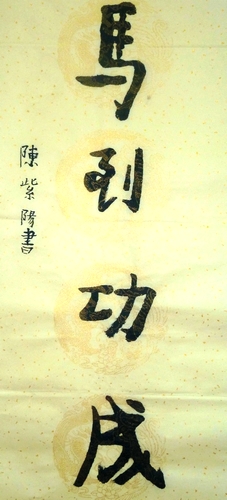 馬到功成
陳紫陽書